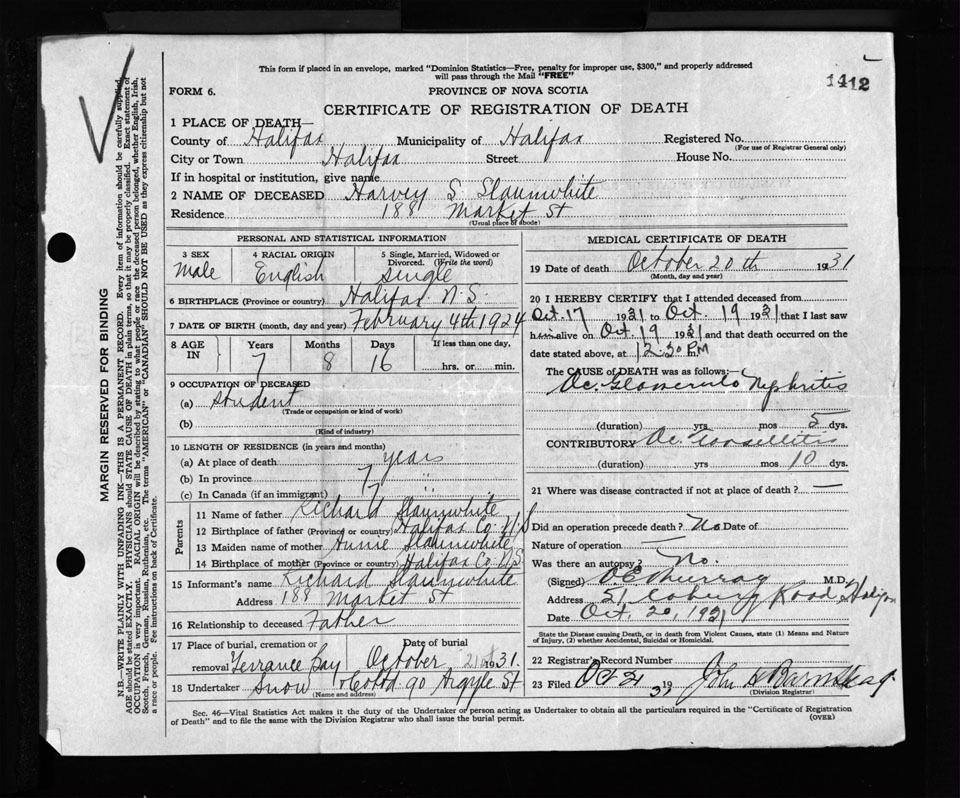 This form if placed in an envelope, marked "Dominion Statistics—Free, penalty for improper use, $300," and properly addressed
will pass through the Mail "FREE"
1412
FORM 6.
PROVINCE OF NOVA SCOTIA
CERTIFICATE OF REGISTRATION OF DEATH
1 PLACE OF DEATH—
County of Halifax Municipality of Halifax Registered No.
(For use of Registrar General only)
City or Town Halifax Street House No.
If in hospital or institution, give name
2 NAME OF DECEASED Harvey S Slaunwhite
Residence 188 Market St
(Usual place of abode)
PERSONAL AND STATISTICAL INFORMATION
3 SEX 4 RACIAL ORIGIN 5 Single, Married, Widowed or
Divorced. (Write the word)
Male English Single
6 BIRTHPLACE (Province or country) Halifax N.S.
7 DATE OF BIRTH (month, day and year) February 4th 1924
8 AGE IN Years Months Days If less than one day,
7 8 16 hrs. or min.
9 OCCUPATION OF DECEASED
(a) Student
(Trade or occupation or kind of work)
(b)
(Kind of industry)
10 LENGTH OF RESIDENCE (in years and months)
(a) At place of death 7 years
(b) In province 7 "
(c) In Canada (if an immigrant)
Parents
11 Name of father Richard Slaunwhite
12 Birthplace of father (Province or country) Halifax Co. N.S
13 Maiden name of mother Annie Slaunwhite
14 Birthplace of mother (Province or country) Halifax Co. N.S.
15 Informant's name Richard Slaunwhite
Address 188 Market St
16 Relationship to deceased Father
17 Place of burial, cremation, or Date of burial
removal Terrance Bay October 21st 1931.
18 Undertaker Snow & Co Ltd 90 Argyle St
(Name and address)
MEDICAL CERTIFICATE OF DEATH
19 Date of death October 20th 1931
(Month, day and year)
20 I HEREBY CERTIFY that I attended deceased from
Oct. 17 1931 to Oct. 19 1931 that I last saw
him alive on Oct. 19 1931 and that death occurred on the
date stated above, at 12.30 PM
The CAUSE of DEATH was as follows:—
Ac. Glomerulo Nephritis
(duration) yrs mos 5 dys.
CONTRIBUTORY Ac. Tonsillitis
(duration) yrs mos 10 dys.
21 Where was disease contracted if not at place of death? —
Did an operation precede death? No Date of
Nature of operation —
Was there an autopsy? No.
(Signed) Murray M.D.
Address 51 Coburg Road Halifax
Date Oct. 20, 1931
State the Disease causing Death, or in death from Violent Causes, state (1) Means and Nature
of Injury, (2) whether Accidental, Suicidal or Homicidal.
22 Registrar's Record Number
23 Filed Oct 21 31 John
(Division Registrar)
Sec. 46—Vital Statistics Act makes it the duty of the Undertaker or person acting as Undertaker to obtain all the particulars required in the "Certificate of Registration
of Death" and to file the same with the Division Registrar who shall issue the burial permit.
(OVER)
MARGIN RESERVED FOR BINDING
N.B.—WRITE PLAINLY WITH UNFADING INK—THIS IS A PERMANENT RECORD. Every item of information should be carefully supplied.
AGE should be stated EXACTLY. PHYSICIANS should STATE CAUSE OF DEATH in plain terms, so that it may be properly classified. Exact statement of
OCCUPATION is very important. RACIAL ORIGIN will be described by stating to what people or race the deceased person belonged, whether English, Irish,
Scotch, French, German, Russian, Ruthenian, etc. The terms "AMERICAN" or "CANADIAN" SHOULD NOT BE USED as they express citizenship but not
a race or people. See instructions on back of Certificate.